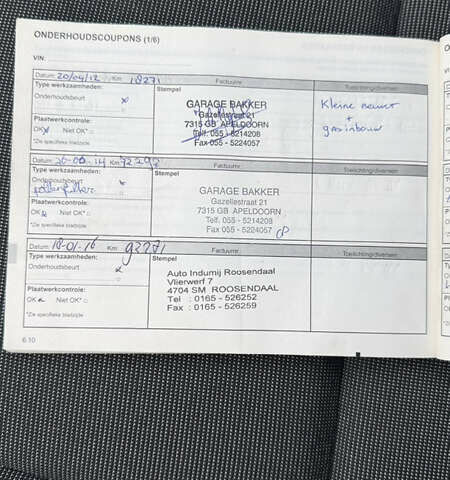 ONDERHOUDSCOUPONS (1/6)
VIN:
Datum: 20/04/12 Km 18271 Factuurnr.
Type werkzaamheden: Stempel Toelichting/diversen
Onderhoudsbeurt x GARAGE BAKKER Kleine
Gazellestraat 21 +
7315 GB APELDOORN gasinbouw
Plaatwerkcontrole: Telf. 055 - 5214208
OK x Niet OK* □ Fax 055 - 5224057
*Zie specifieke bladzijde
Datum: Km 72293 Factuurnr.
Type werkzaamheden: Stempel Toelichting/diversen
Onderhoudsbeurt x GARAGE BAKKER
pollenfilter Gazellestraat 21
7315 GB APELDOORN
Plaatwerkcontrole: Telf. 055 - 5214208
OK x Niet OK* □ Fax 055 - 5224057
*Zie specifieke bladzijde
Datum: 18-01-16 Km 92271 Factuurnr.
Type werkzaamheden: Stempel Toelichting/diversen
Onderhoudsbeurt x Auto Indumij Roosendaal
Vlierwerf 7
Plaatwerkcontrole: 4704 SM ROOSENDAAL
OK x Niet OK* □ Tel : 0165 - 526252
Fax : 0165 - 526259
*Zie specifieke bladzijde
6.10